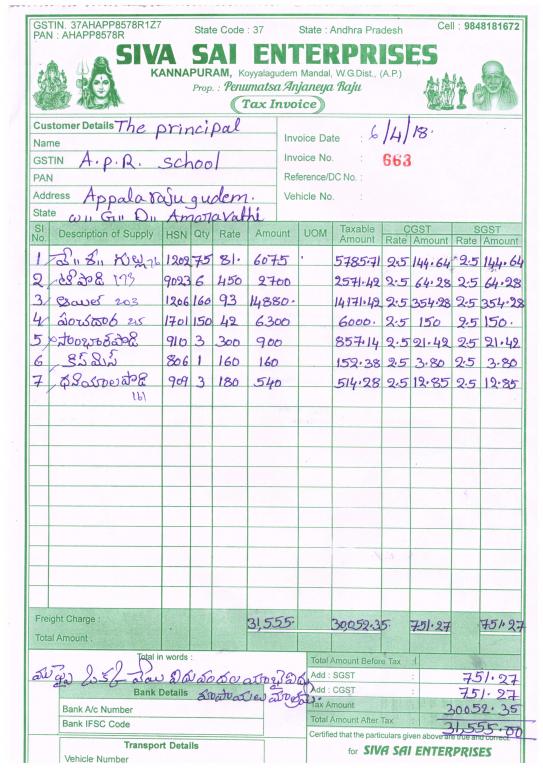 GSTIN. 37AHAPP8578R1Z7 State Code : 37 State : Andhra Pradesh Cell : 9848181672
PAN : AHAPP8578R
SIVA SAI ENTERPRISES
KANNAPURAM, Koyyalagudem Mandal, W.G.Dist., (A.P.)
Prop. : Penumatsa Anjaneya Raju
Tax Invoice
Customer Details The principal
Name
GSTIN A.P.R. school
PAN
Address Appalarajugudem.
State W" G" D" Amaravathi
Invoice Date : 6/4/18.
Invoice No. : 663
Reference/DC No. :
Vehicle No. :
Sl No. Description of Supply HSN Qty Rate Amount UOM Taxable Amount CGST Rate Amount SGST Rate Amount
1 వే" శ" గుళ్ళు 76 1202 75 81. 6075 5785.71 2.5 144.64 2.5 144.64
2 టీపొడి 173 9023 6 450 2700 2571.42 2.5 64.28 2.5 64.28
3 ఆయిల్ 203 1206 160 93 14880. 14171.42 2.5 354.28 2.5 354.28
4 పంచదార 25 1701 150 42 6300 6000. 2.5 150 2.5 150.
5 సాంబారుపొడి 910 3 300 900 857.14 2.5 21.42 2.5 21.42
6 కిస్‌మిస్ 806 1 160 160 152.38 2.5 3.80 2.5 3.80
7 ధనియాలపొడి 909 3 180 540 514.28 2.5 12.85 2.5 12.85
161
Freight Charge : 31,555. 30052.35 751.27 751.27
Total Amount :
Total in words :
ముప్పై ఒకక్క వేయి ఐదువందలయాభైఐదు
రూపాయలు మాత్రమే.
Bank Details
Bank A/c Number
Bank IFSC Code
Transport Details
Vehicle Number
Total Amount Before Tax :
Add : SGST : 751.27
Add : CGST : 751.27
Tax Amount : 30052.35
Total Amount After Tax : 31,555.00
Certified that the particulars given above are true and correct
for SIVA SAI ENTERPRISES